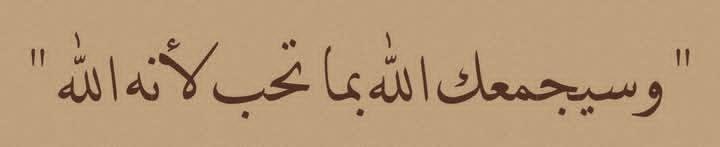 " وسيجمعك الله بما تحب لأنه الله "